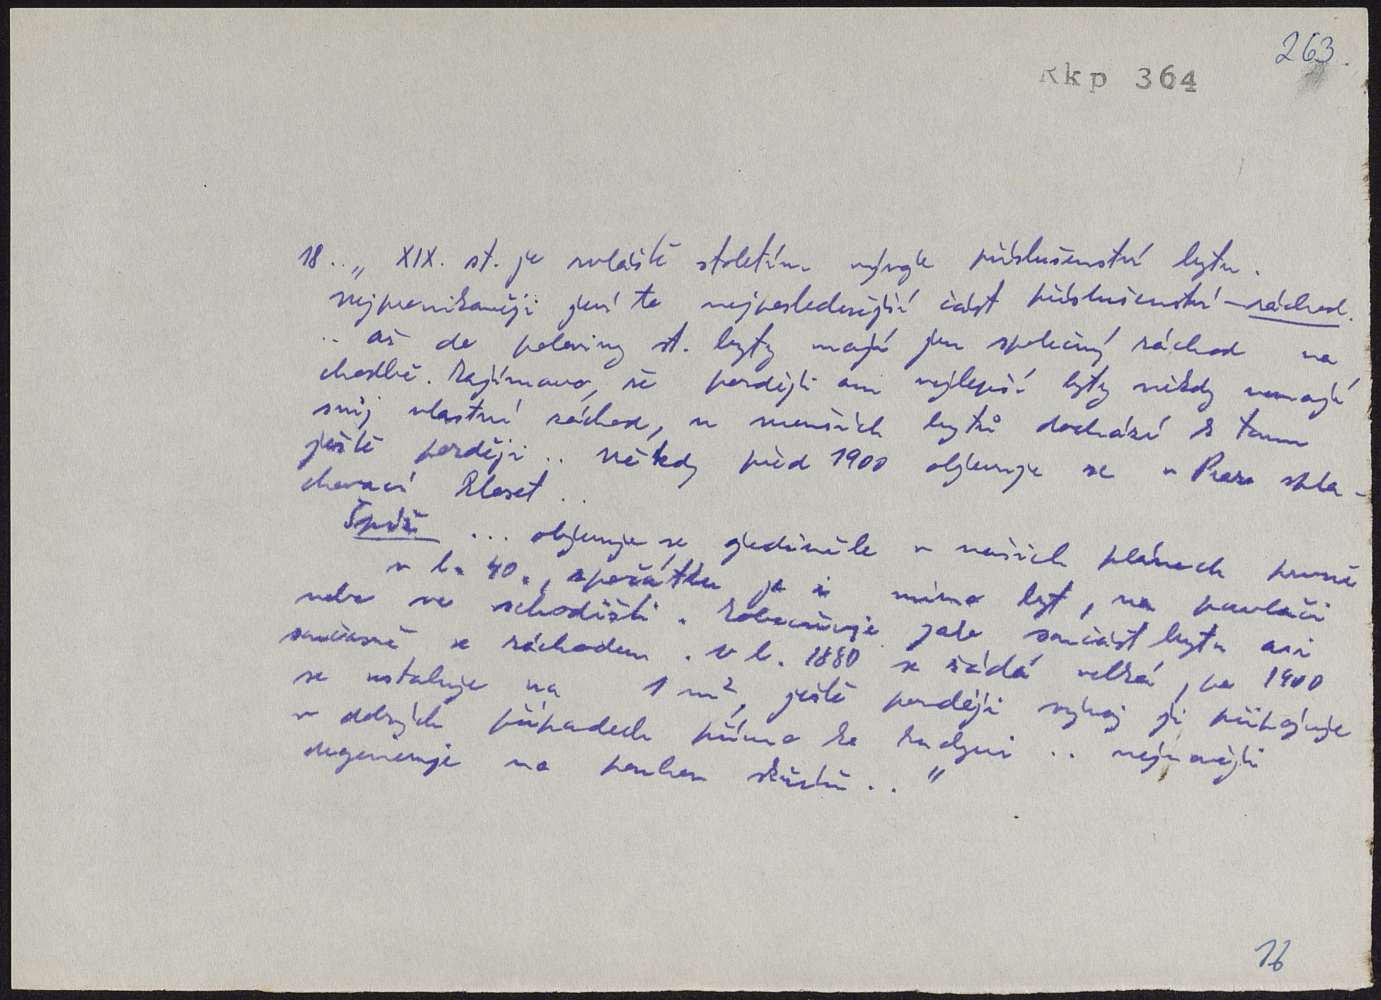 263.
Rkp 364
18.. „ XIX. st. je zvláště stoletím vývoje příslušenství bytu.
Nejpronikavěji jeví to nejposlednější část příslušenství – záchod.
.. až do poloviny st. byty mají jen společný záchod na
chodbě. Zajímavo, že později ani nejlepší byty někdy nemají
svůj vlastní záchod, u menších bytů dochází k tomu
ještě později .. někdy před 1900 objevuje se v Praze spla-
chovací kloset ..
Spíž ... objevuje se ojediněle v našich plánech prvně
v l. 40., zpočátku je i mimo byt, na pavlači
nebo ve schodišti. Zobecňuje jako součást bytu asi
současně se záchodem. V l. 1880 se žádá velká, po 1900
se ustaluje na 1 m², ještě později vývoj ji připojuje
v dobrých případech přímo ke kuchyni .. nejnověji
degeneruje na pouhou skříň .. "
16